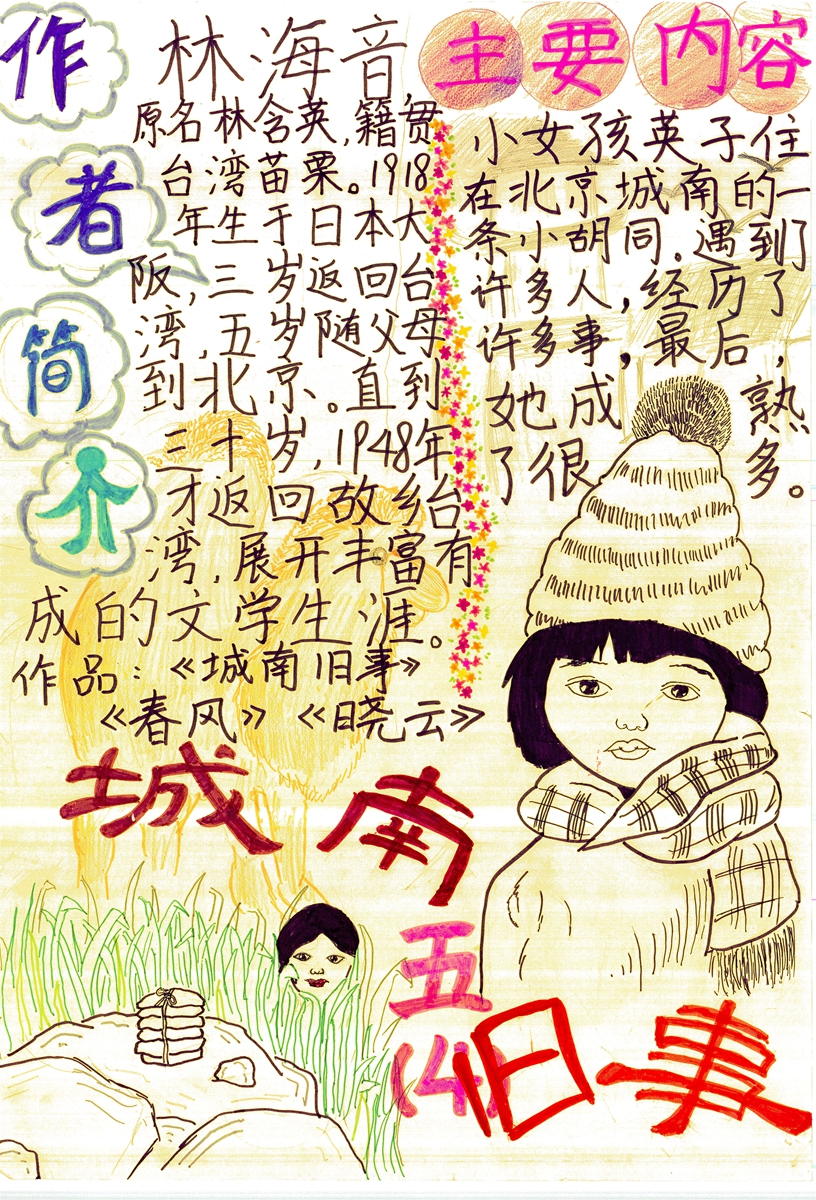 作者简介
林海音
原名林含英,籍贯
台湾苗栗。1918
年生于日本大
阪,三岁返回台
湾,五岁随父母
到北京。直到
三十岁,1948年
才返回故乡台
湾,展开丰富有
成的文学生涯。
作品:《城南旧事》
《春风》《晓云》
主要内容
小女孩英子住
在北京城南的一
条小胡同.遇到了
许多人,经历了
许多事,最后,
她成熟
了很多。
城南
旧事
五
(4)